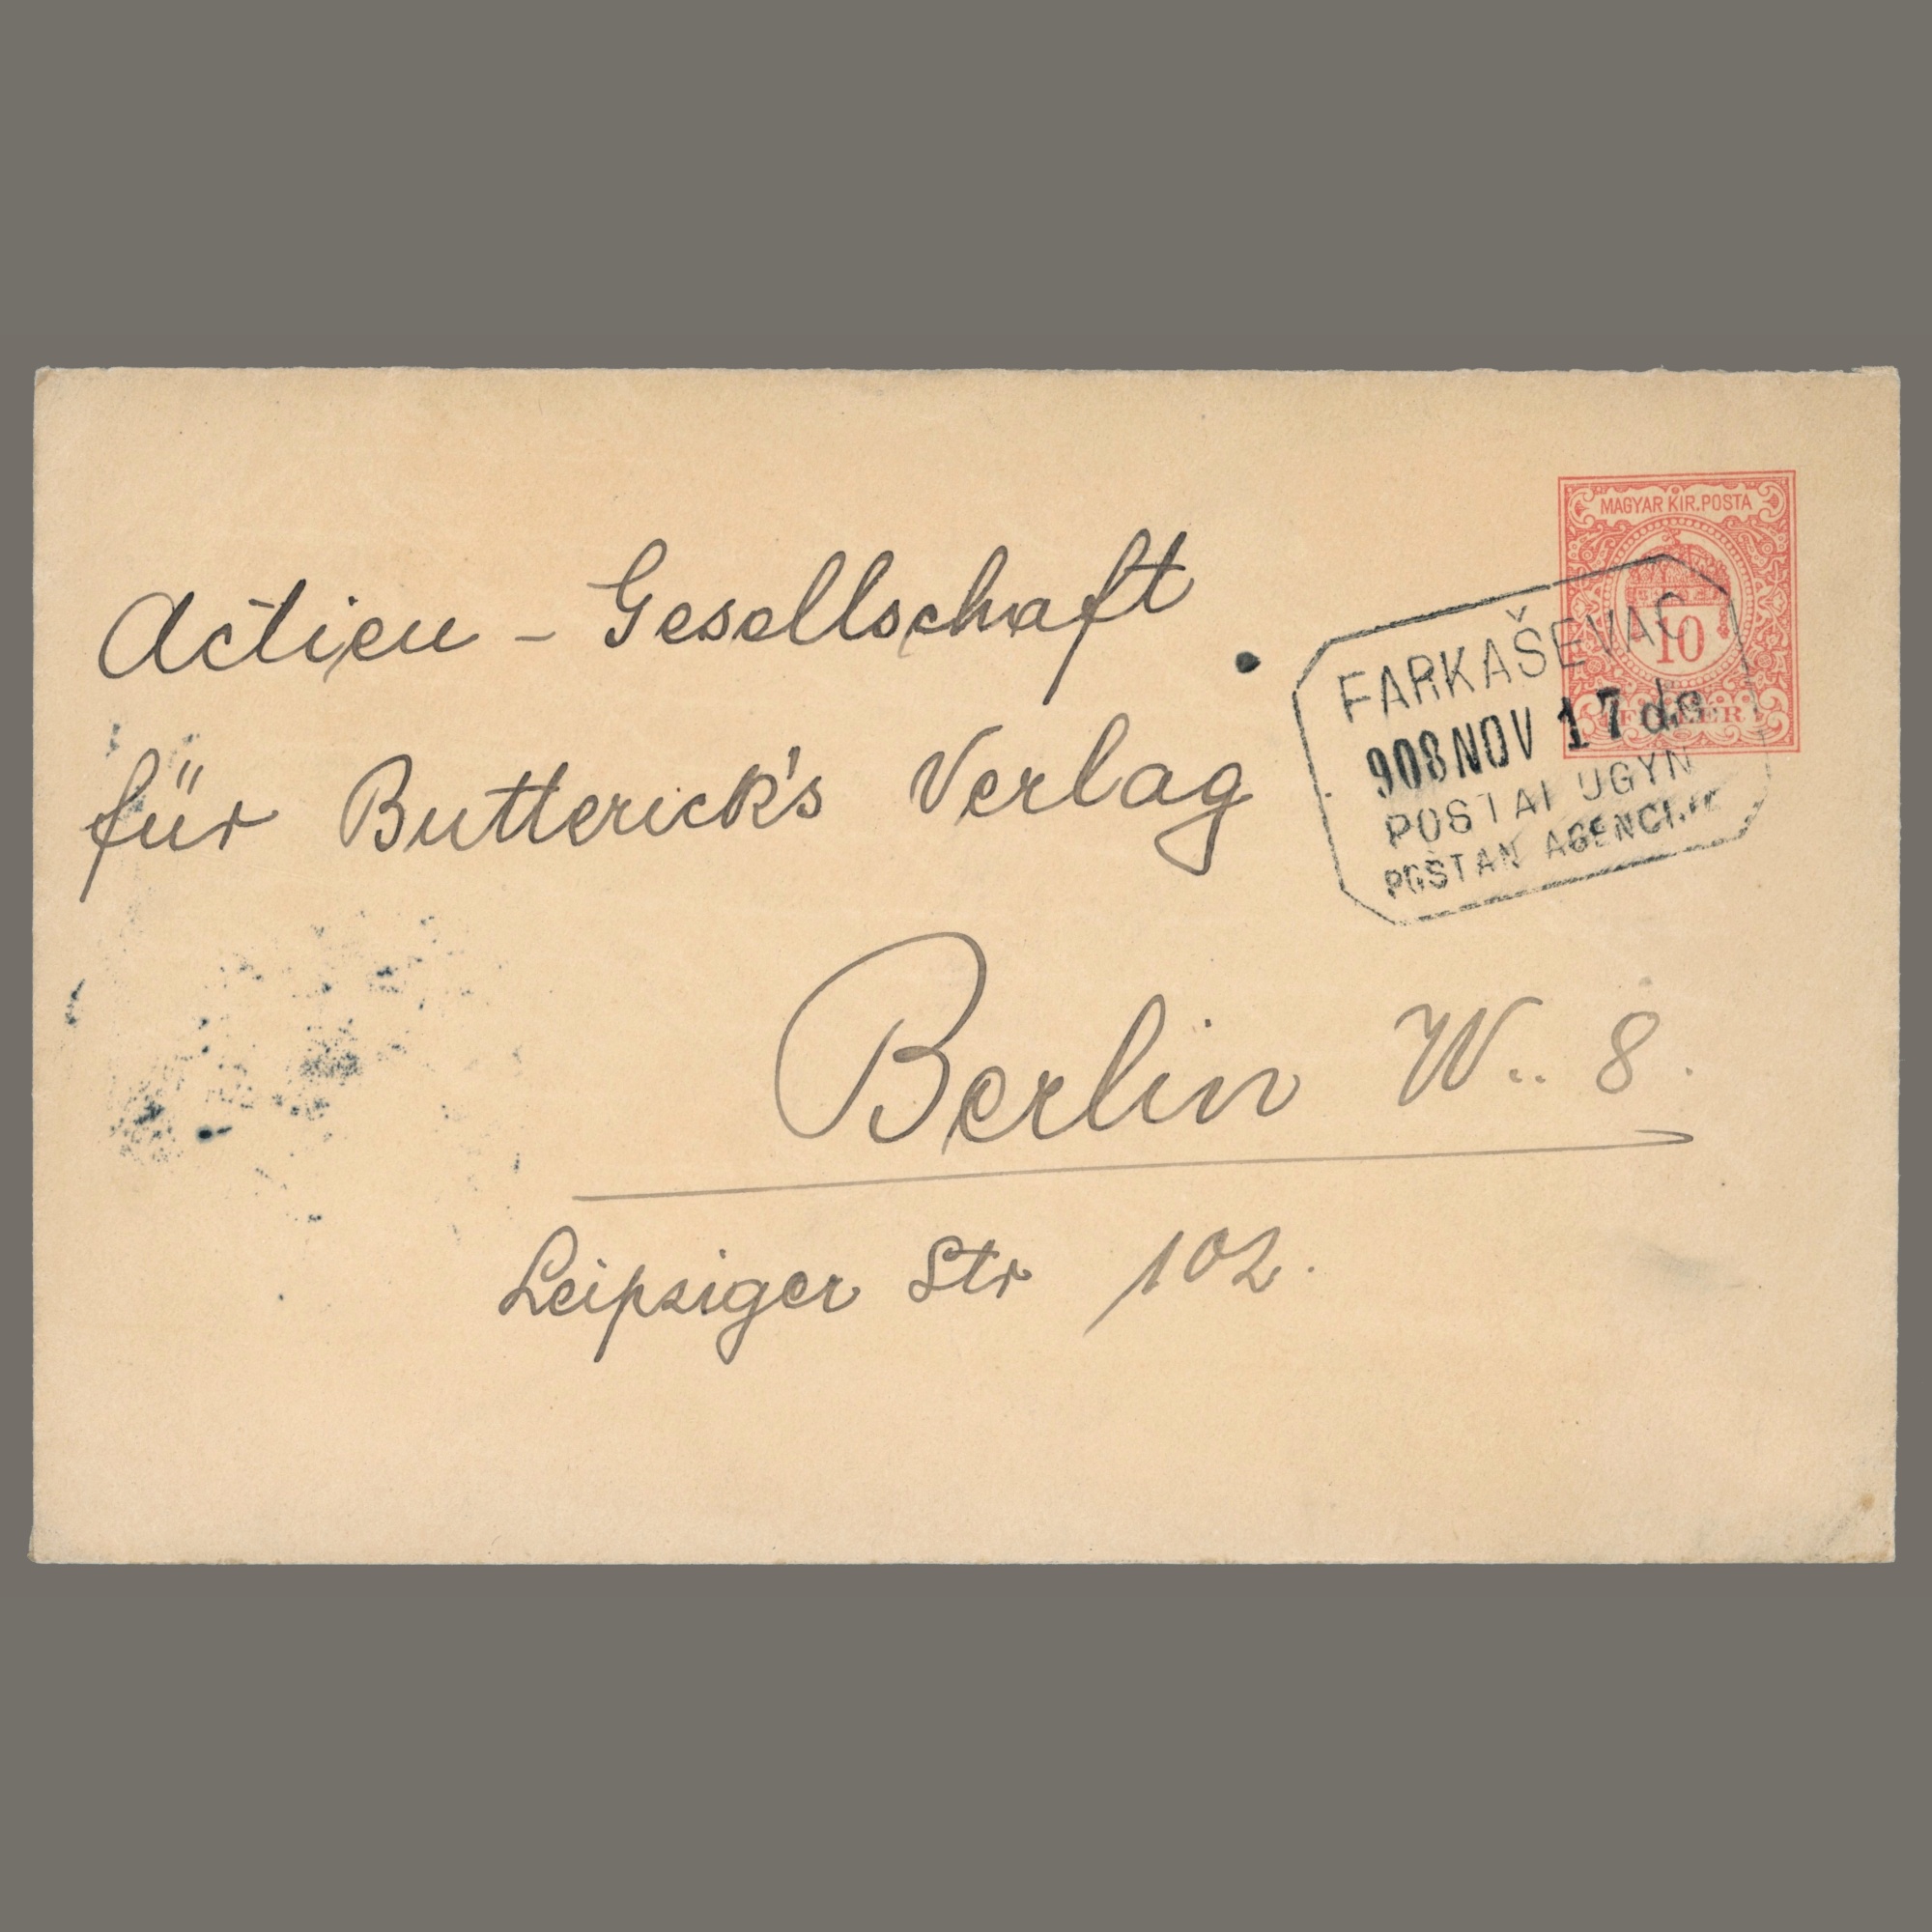 MAGYAR KIR. POSTA
10
FILLER
FARKAŠEVAC
908 NOV 17 de
POSTAI UGYN
POŠTAN AGENCIJE
Actien - Gesellschaft
für Butterick's Verlag
Berlin W.. 8.
Leipziger Str 102.